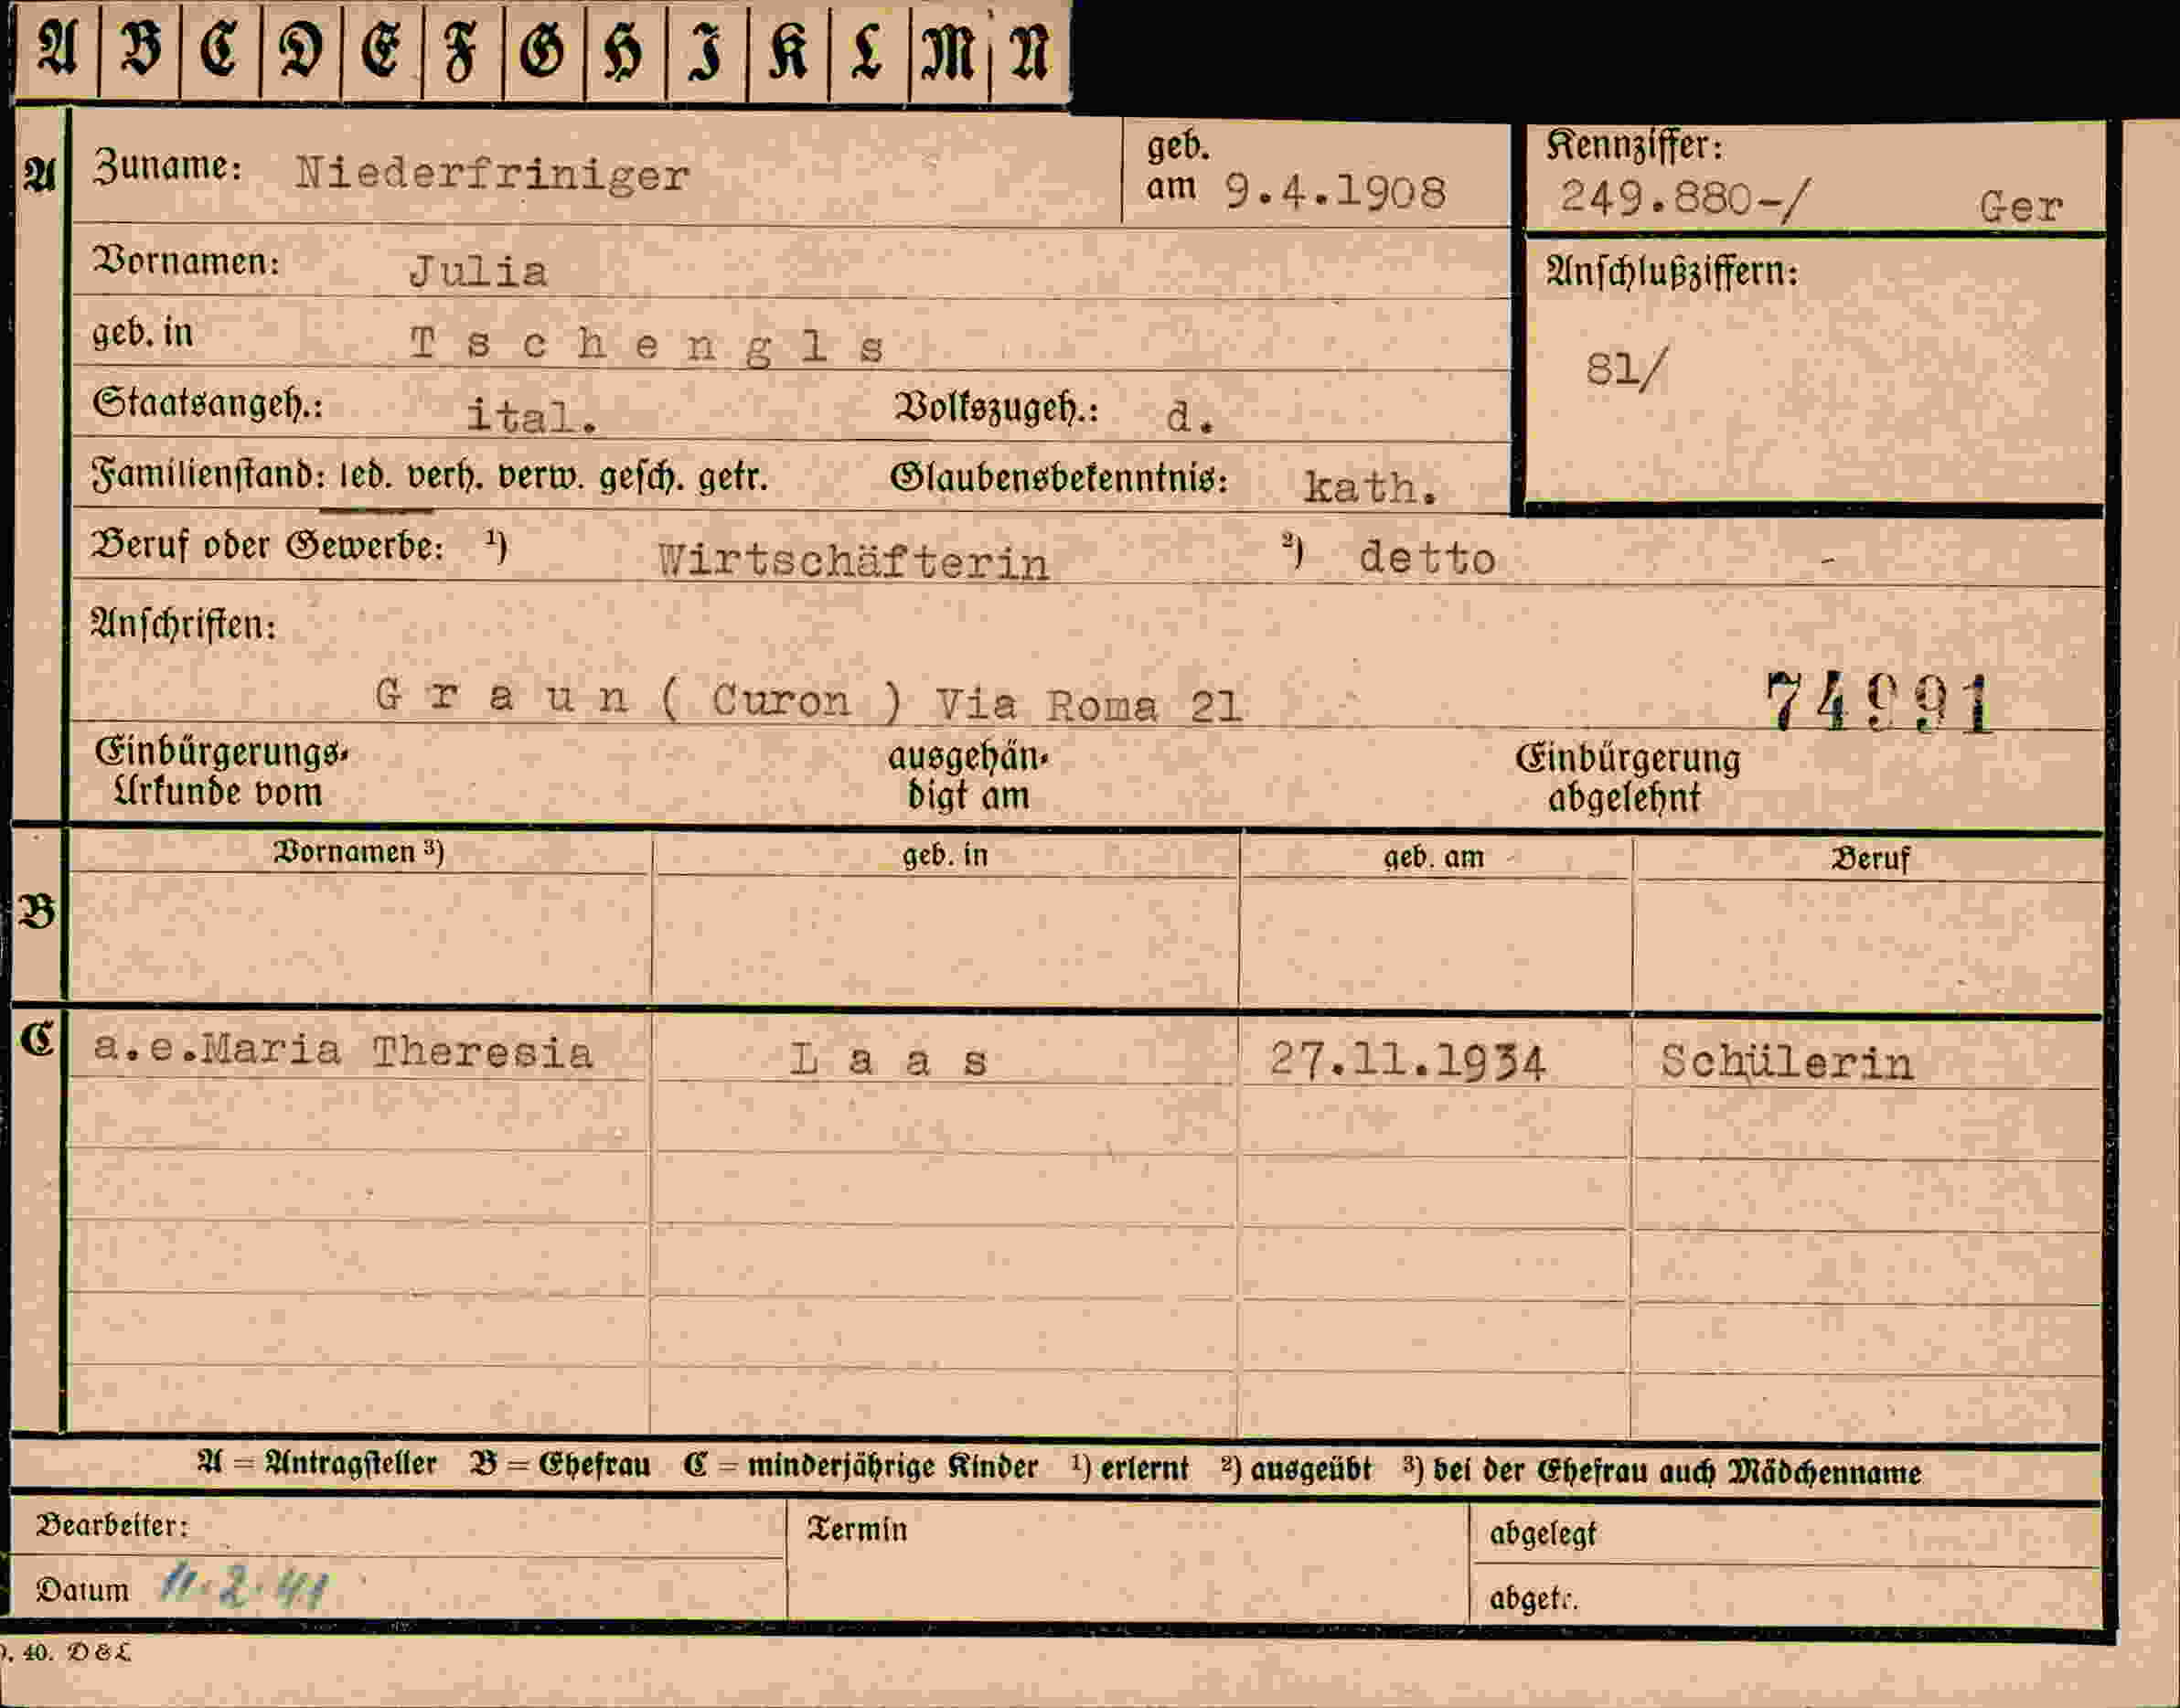 A B C D E F G H I K L M N
A Zuname: Niederfriniger geb. am 9.4.1908 Kennziffer: 249.880-/ Ger
Vornamen: Julia Anschlußziffern:
geb. in T s c h e n g l s 81/
Staatsangeh.: ital. Volkszugeh.: d.
Familienstand: led. verh. verw. gesch. getr. Glaubensbekenntnis: kath.
Beruf oder Gewerbe: ¹) Wirtschäfterin ²) detto -
Anschriften:
G r a u n ( Curon ) Via Roma 21 74991
Einbürgerungs- ausgehän- Einbürgerung
Urkunde vom digt am abgelehnt
Vornamen ³) geb. in geb. am Beruf
B
C a.e.Maria Theresia L a a s 27.11.1934 Schülerin
A = Antragsteller B = Ehefrau C = minderjährige Kinder ¹) erlernt ²) ausgeübt ³) bei der Ehefrau auch Mädchenname
Bearbeiter: Termin abgelegt
Datum 11.2.41 abgetr.
. 40. D & L